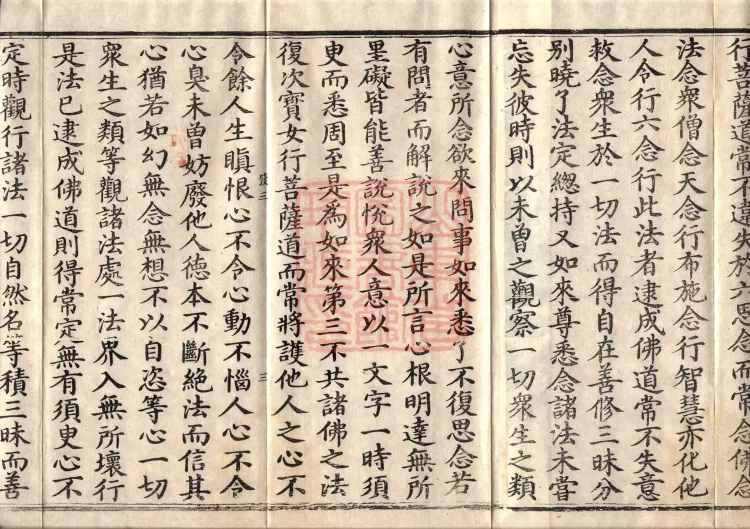 行菩薩道常不違失於六思念而常念佛念
法念衆僧念天念行布施念行智慧亦化他
人令行六念行此法者逮成佛道常不失意
救念衆生於一切法而得自在善修三昧分
別曉了法定緫持又如來尊悉念諸法未嘗
忘失彼時則以未曽之觀察一切衆生之類
心意所念欲來問事如來悉了不復思念若
有問者而解說之如是所言心根明達無所
罣礙皆能善說悅衆人意以一文字一時須
臾而悉周至是爲如來第三不共諸佛之法
復次寶女行菩薩道而常將護他人之心不
發三
三
令餘人生瞋恨心不令心動不惱人心不令
心臭未曽妨廢他人德本不斷絕法而信其
心猶若如幻無念無想不以自恣等心一切
衆生之類等觀諸法處一法界入無所壞行
是法已逮成佛道則得常定無有須臾心不
定時觀行諸法一切自然名等積三昧而善